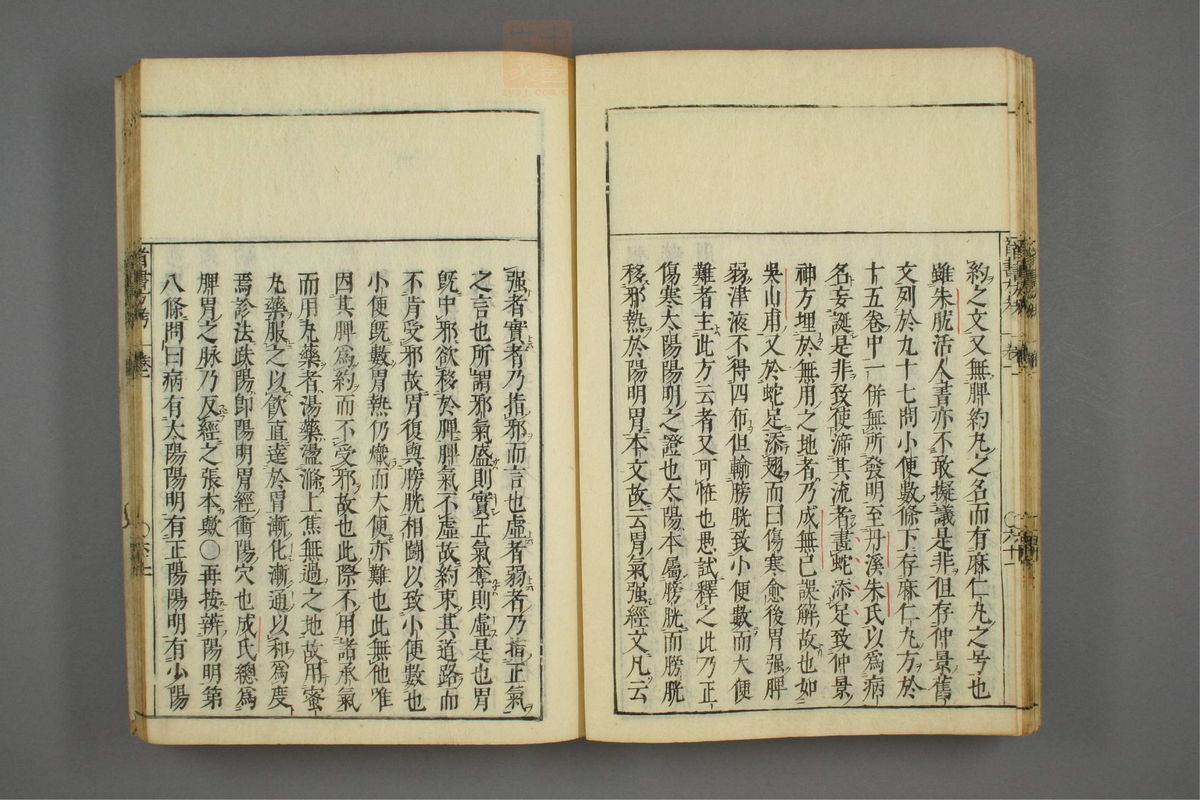 約之文又無脾約丸之名而有麻仁丸之号也
雖朱肱活人書亦不敢擬議是非但存仲景舊
文列於九十七問小便數條下存麻仁丸方於
十五卷中一併無所發明至丹溪朱氏以為病
名妄誕是非致使滯其流者畫蛇添足致仲景
神方埋於無用之地者乃成無己誤解故也如
吳山甫又於蛇足添翅而曰傷寒愈後胃强脾
弱津液不得四布但輸膀胱致小便數而大便
難者主此方云者又可恠也愚試釋之此乃正
傷寒太陽陽明之證也太陽本屬膀胱而膀胱
移邪熱於陽明胃本文故云胃氣强經文凡云
强者實者乃指邪而言也虛者弱者乃指正氣
之言也所謂邪氣盛則實正氣奪則虛是也胃
既中邪欲移於脾脾氣不虛故約束其道路而
不肯受邪故胃復與膀胱相鬪以致小便數也
小便既數胃熱仍熾而大便亦難也此無他唯
因其脾為約而不受邪故也此際不用諸承氣
而用丸藥者湯藥盪滌上焦無過之地故用蜜
丸藥服之以飲直達於胃漸化漸通以和為度
焉診法趺陽即陽明胃經衝陽穴也成氏總為
脾胃之脉乃反經之張本歟○再按辨陽明第
八條問曰病有太陽陽明有正陽陽明有少陽